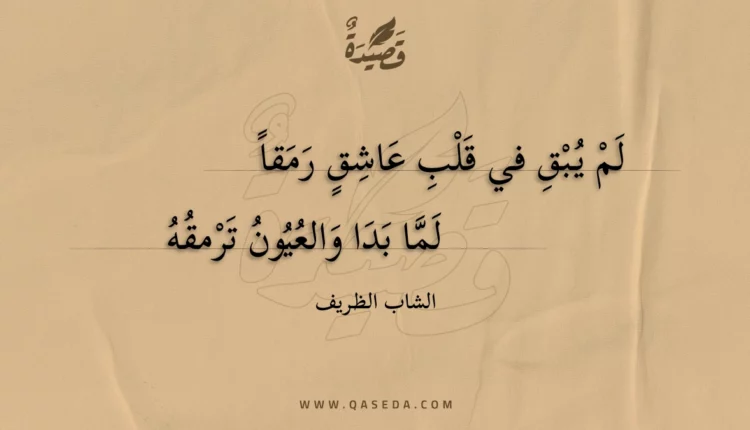 قَصِيدَةٌ
لَمْ يُبْقِ في قَلْبِ عَاشِقٍ رَمَقاً
لَمَّا بَدَا وَالعُيُونُ تَرْمقُهُ
الشاب الظريف
WWW.QASEDA.COM